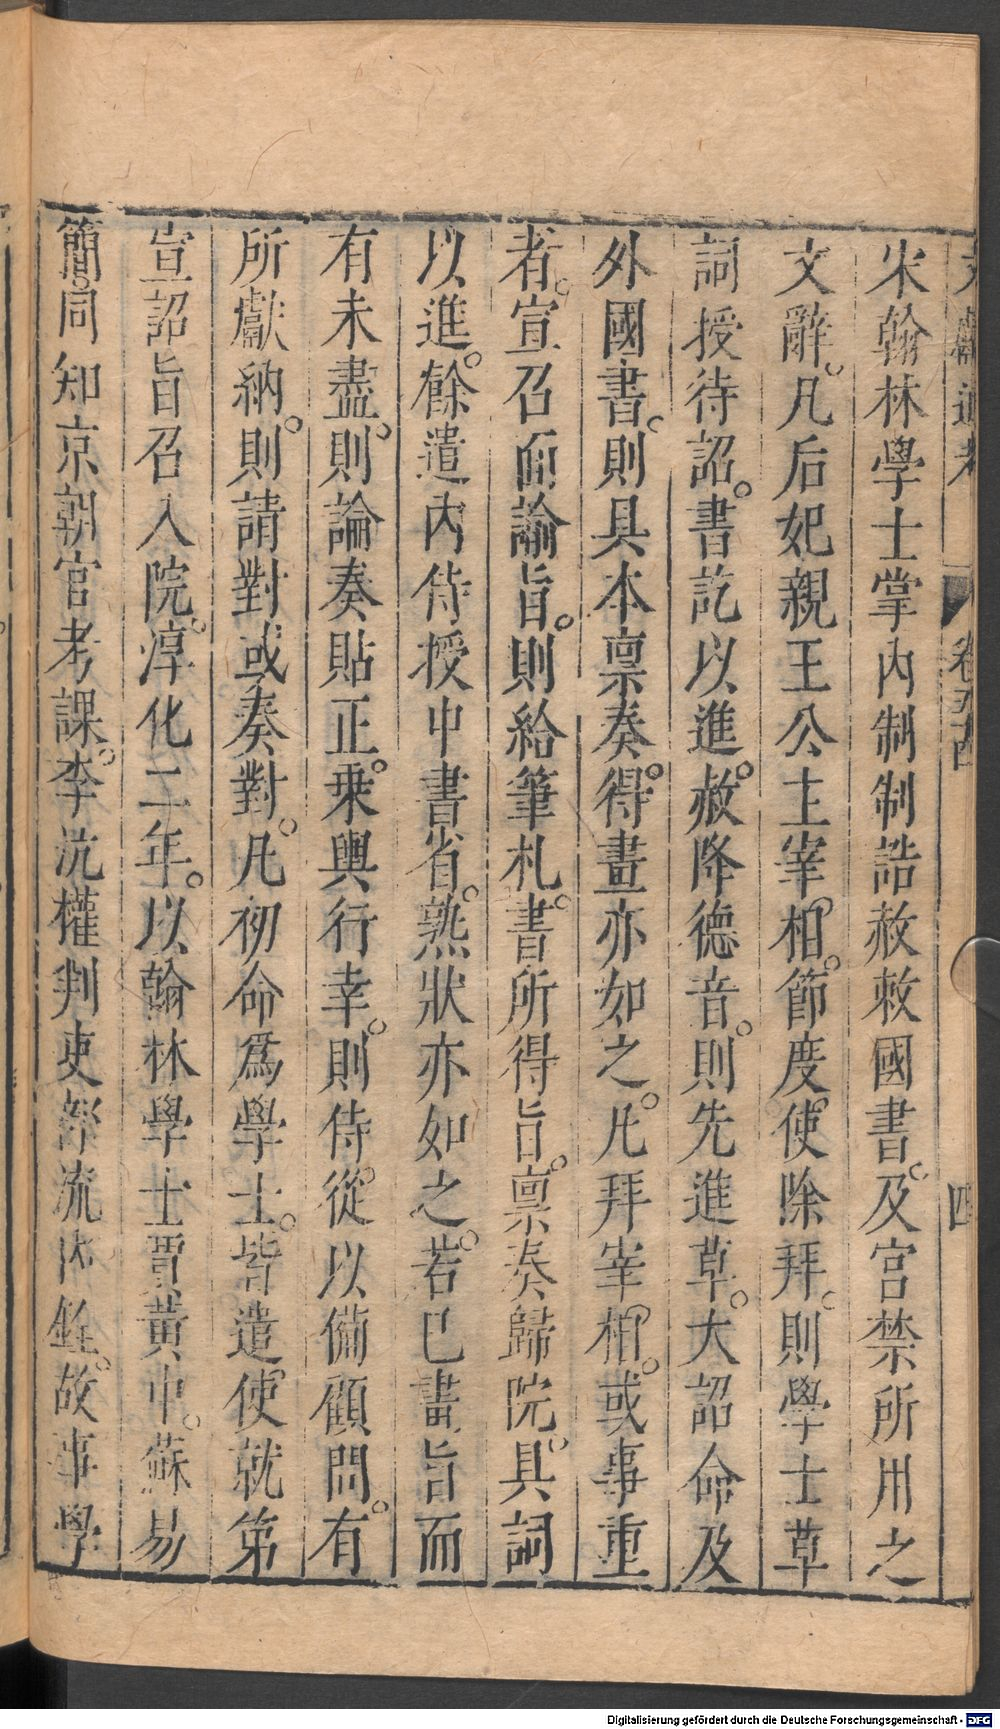 文獻通考 卷五十四 四
宋翰林學士掌內制制誥赦敕國書及宮禁所用之
文辭凡后妃親王公主宰相節度使除拜則學士草
詞授待詔書訖以進赦降德音則先進草大詔命及
外國書則具本禀奏得畫亦如之凡拜宰相或事重
者宣召面諭旨則給筆札書所得旨禀奏歸院具詞
以進餘遣內侍授中書省熟狀亦如之若已畫旨而
有未盡則論奏貼正乗輿行幸則侍從以備顧問有
所獻納則請對或奏對凡初命爲學士皆遣使就第
宣詔旨召入院淳化二年以翰林學士賈黃中蘇易
簡同知京朝官考課李沆權判吏部流內銓故事學
Digitalisierung gefördert durch die Deutsche Forschungsgemeinschaft - DFG